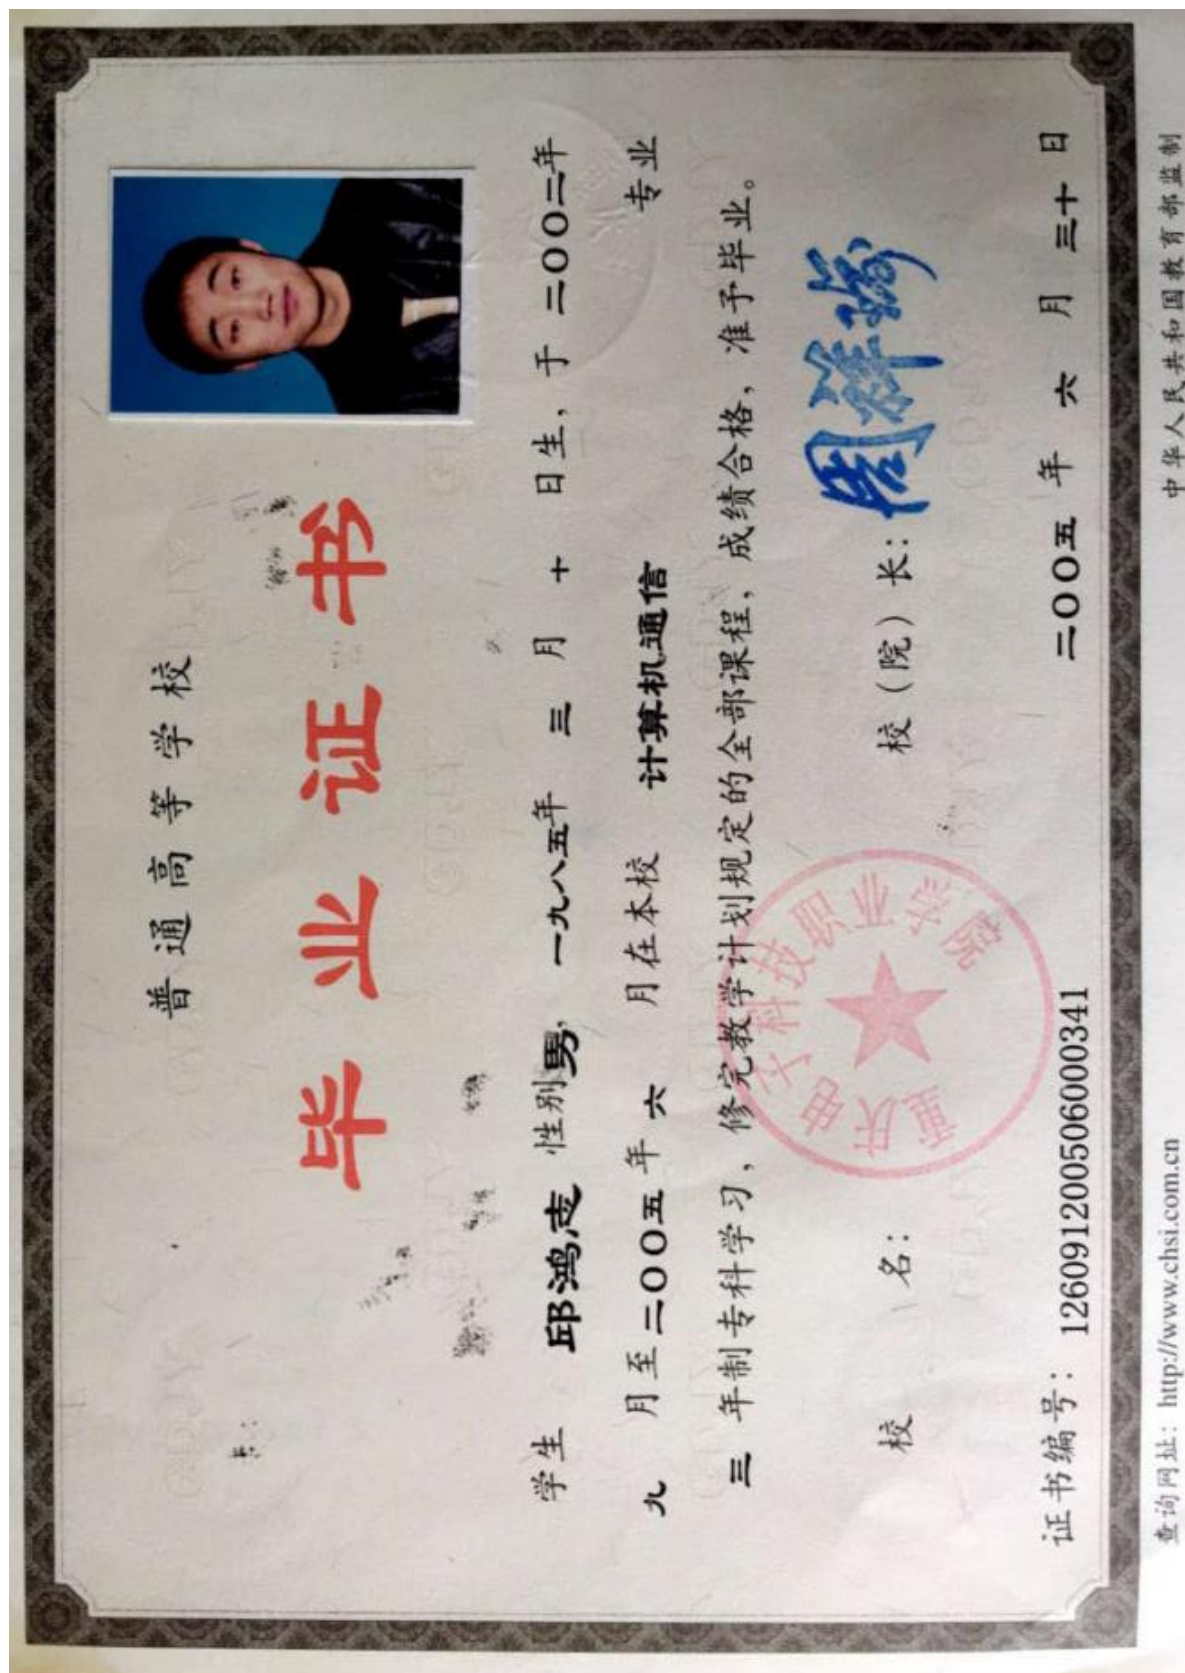 普通高等学校
毕业证书
学生 邱鸿志 性别男，一九八五年 三 月 十 日生，于 二〇〇二年
九 月至二〇〇五年 六 月在本校 计算机通信 专业
三 年制专科学习，修完教学计划规定的全部课程，成绩合格，准予毕业。
校 名： 校（院）长：
重庆电子科技职业学院
证书编号：126091200506000341 二〇〇五 年 六 月 三十 日
查询网址：http://www.chsi.com.cn 中华人民共和国教育部监制